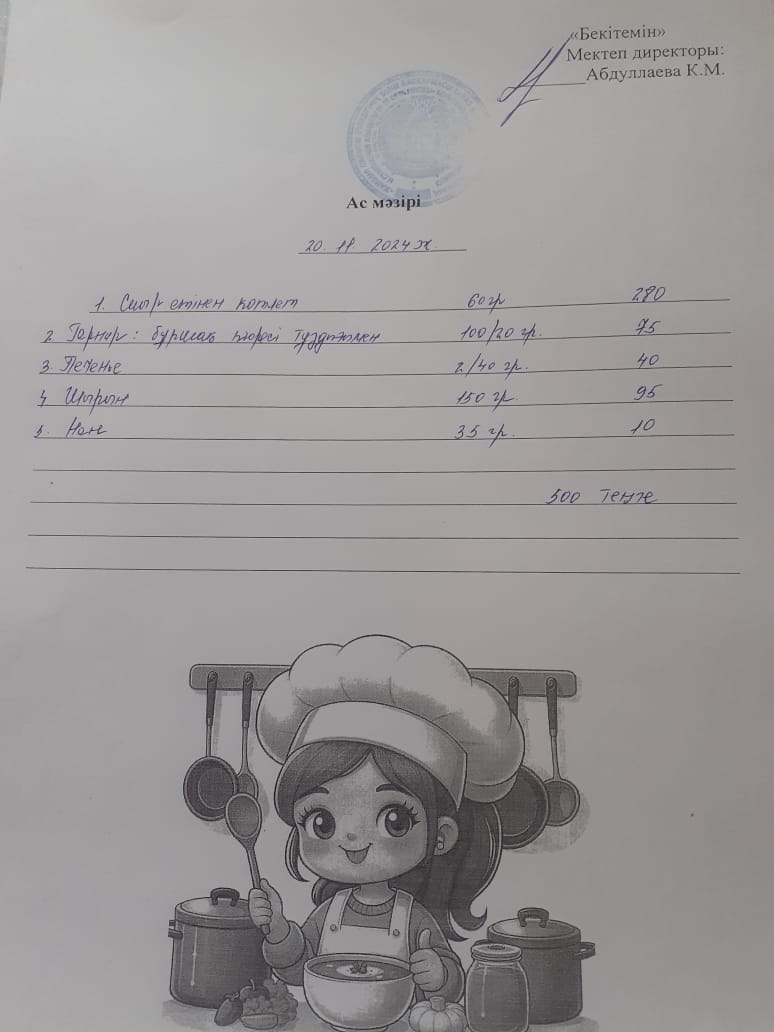 «Бекітемін»
Мектеп директоры:
Абдуллаева К.М.
Ас мәзірі
20. 11. 2024ж.
1. Сиыр етінен котлет 60гр 280
2. Гарнир: бұршақ пюресі тұздықпен 100/20 гр. 75
3. Печенье 2/40 гр. 40
4. Шырын 150 гр. 95
5. Нан 35 гр. 10
500 теңге